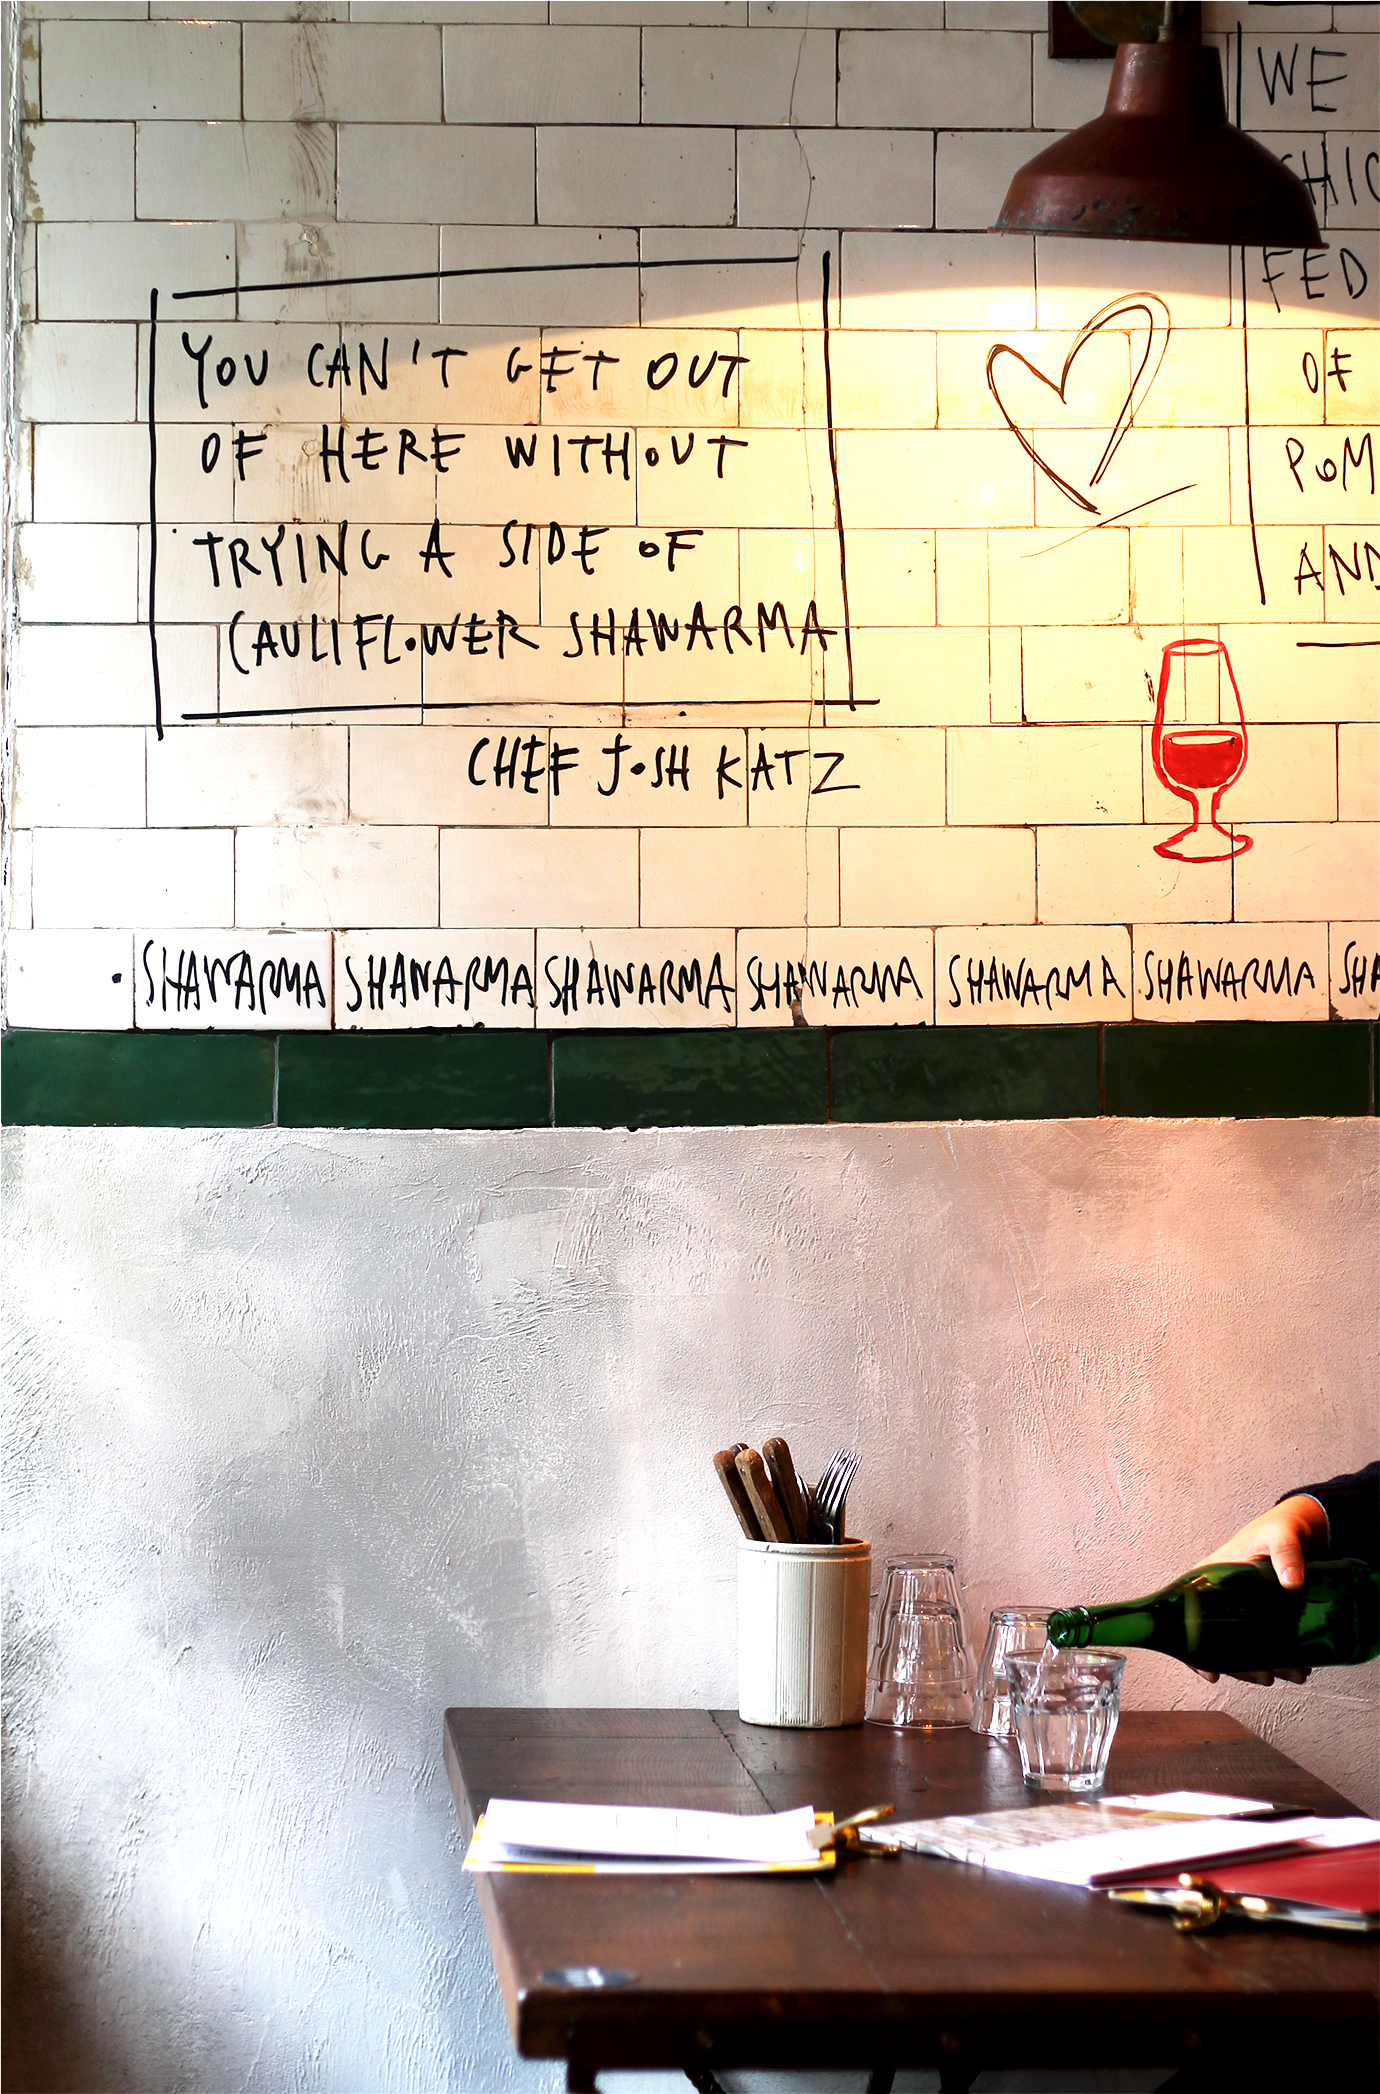 YOU CAN'T GET OUT
OF HERE WITHOUT
TRYING A SIDE OF
CAULIFLOWER SHAWARMA
CHEF JOSH KATZ
WE
FED
OF
AND
SHAWARMA SHAWARMA SHAWARMA SHAWARMA SHAWARMA SHAWARMA